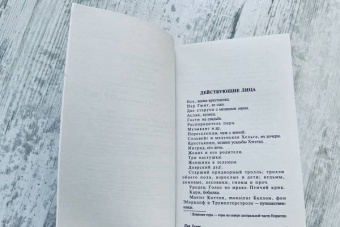 ДЕЙСТВУЮЩИЕ ЛИЦА
Осе, вдова крестьянина.
Пер Гюнт, ее сын.
Две старухи с мешками зерна.
Аслак, кузнец.
Гости на свадьбе.
Распорядитель пира.
Музыкант и др.
Переселенцы, муж с женой.
Сольвейг и маленькая Хельга, их дочери.
Крестьянин, хозяин усадьбы Хэгстад.
Ингрид, его дочь.
Жених и его родители.
Три пастушки.
Женщина в зеленом.
Доврский дед¹.
Старший придворный тролль; тролли
обоего пола, взрослые и дети; ведьмы,
домовые, лешие, гномы и проч.
Уродец Голос во мраке Птичий крик.
Кари, бобылка.
Мастер Коттон, monsieur Баллон, фон
Эберкопф и Трумпетерстроле — путешественники.